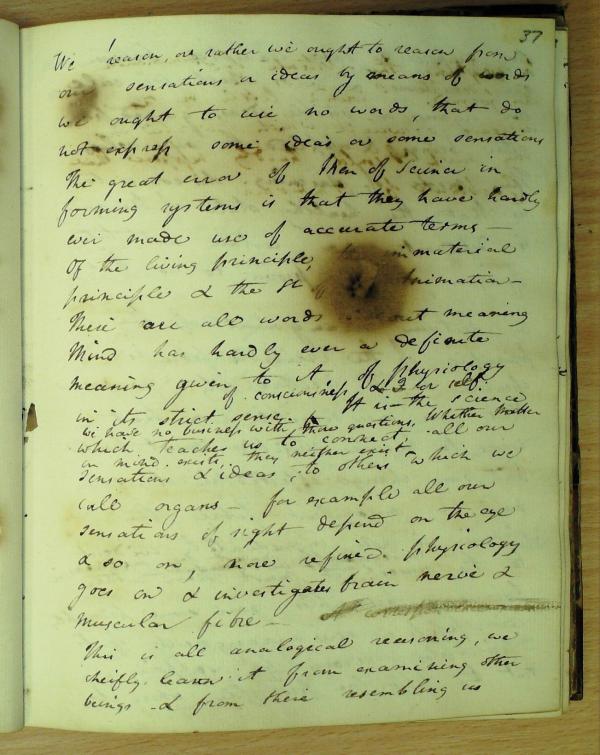 37
We reason, or rather we ought to reason from
our sensations or ideas by means of words
we ought to use no words, that do
not express some ideas or some sensations
The great error of Men of Science in
forming systems is that they have hardly
ever made use of accurate terms —
Of the living principle, immaterial
principle & the St Animation —
These are all words meaning
Mind has hardly ever a definite
meaning given to it of physiology
of consciousness & I or self.
in its strict sense. It is the science
we have no business with these questions, Whether Matter
which teaches us to connect all our
or mind exists, they neither exist
sensations & ideas, to others which we
call organs — for example all our
sensations of sight depend on the eye
& so on, more refined physiology
goes on & investigates brain nerve &
muscular fibre —
This is all analogical reasoning, we
cheifly learn it from examining other
beings & from their resembling us